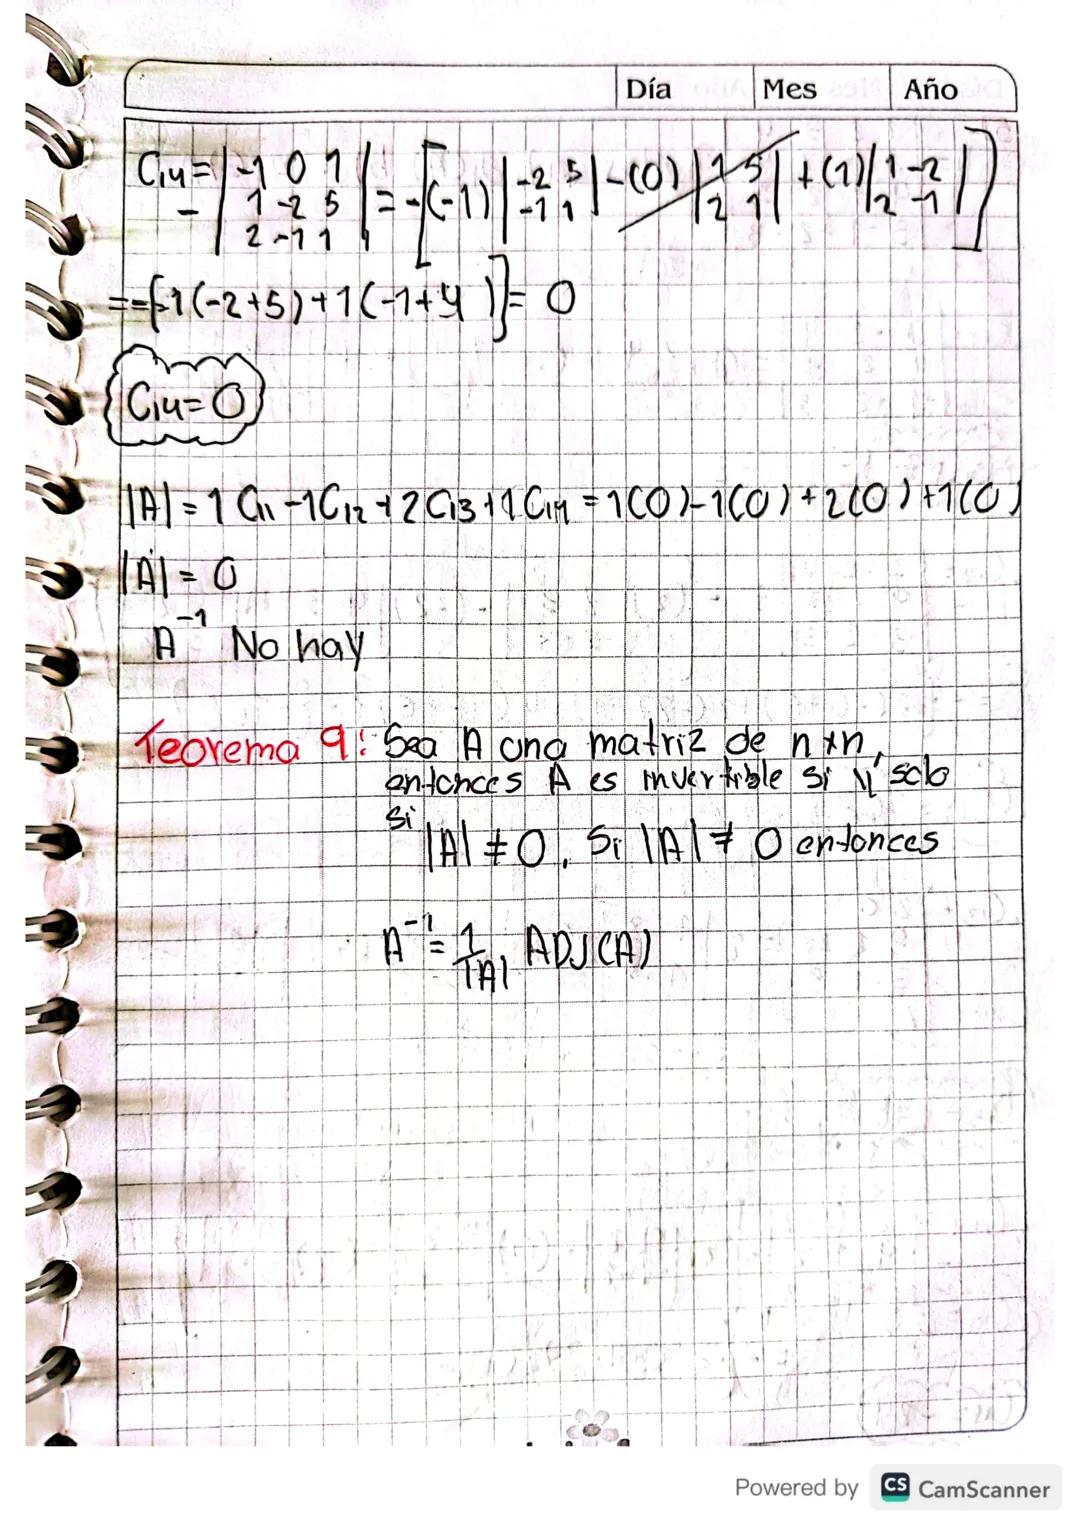 Día Mes Año
C14 = - | -1 0 1 | = - [ (-1) | -2 5 | - (0) | 1 5 | + (1) | 1 -2 | ]
1 -2 5 -1 1 2 1 2 -1
2 -1 1
= - [ -1 (-2+5) + 1 (-1+4 ) ] = 0
C14 = 0
|A| = 1 C11 - 1C12 + 2 C13 + 1 C14 = 1(0) - 1(0) + 2(0) + 1(0)
|A| = 0
A⁻¹ No hay
Teorema 9: Sea A una matriz de n x n,
entonces A es invertible si y solo
si
|A| ≠ 0. Si |A| ≠ 0 entonces
A⁻¹ = 1/|A| ADJ(A)
Powered by CS CamScanner